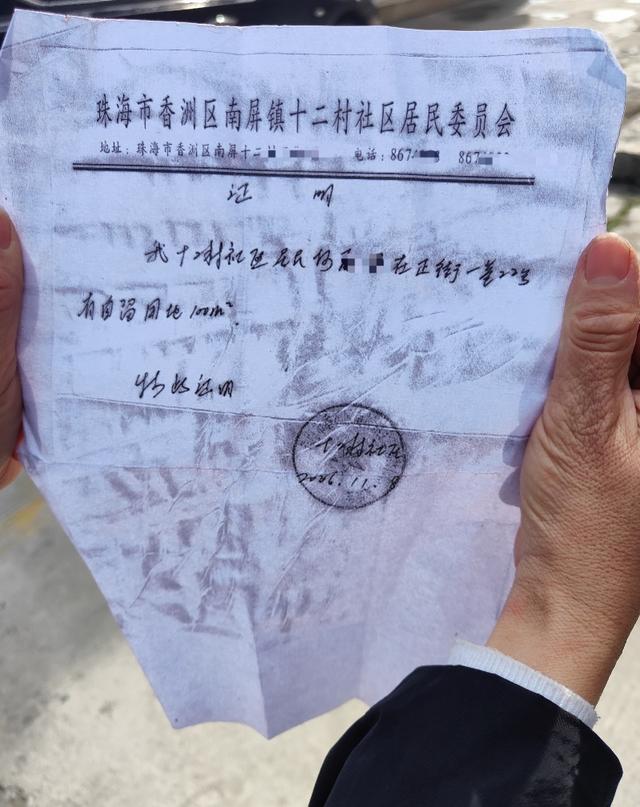 珠海市香洲区南屏镇十二村社区居民委员会
地址：珠海市香洲区南屏十二 电话：867 867
证 明
我十二村社区居民 在正街一巷22号
有自留用地100m².
特此证明
十二村社区
2006.11.8